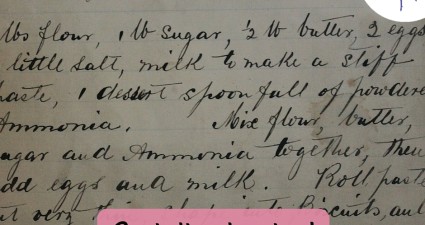 lbs flour, 1 lb sugar, ½ lb butter, 2 eggs
little salt, milk to make a stiff
paste, 1 dessert spoonfull of powdere
Ammonia. Mix flour, butter,
ugar and Ammonia together, then
dd eggs and milk. Roll paste
very thin